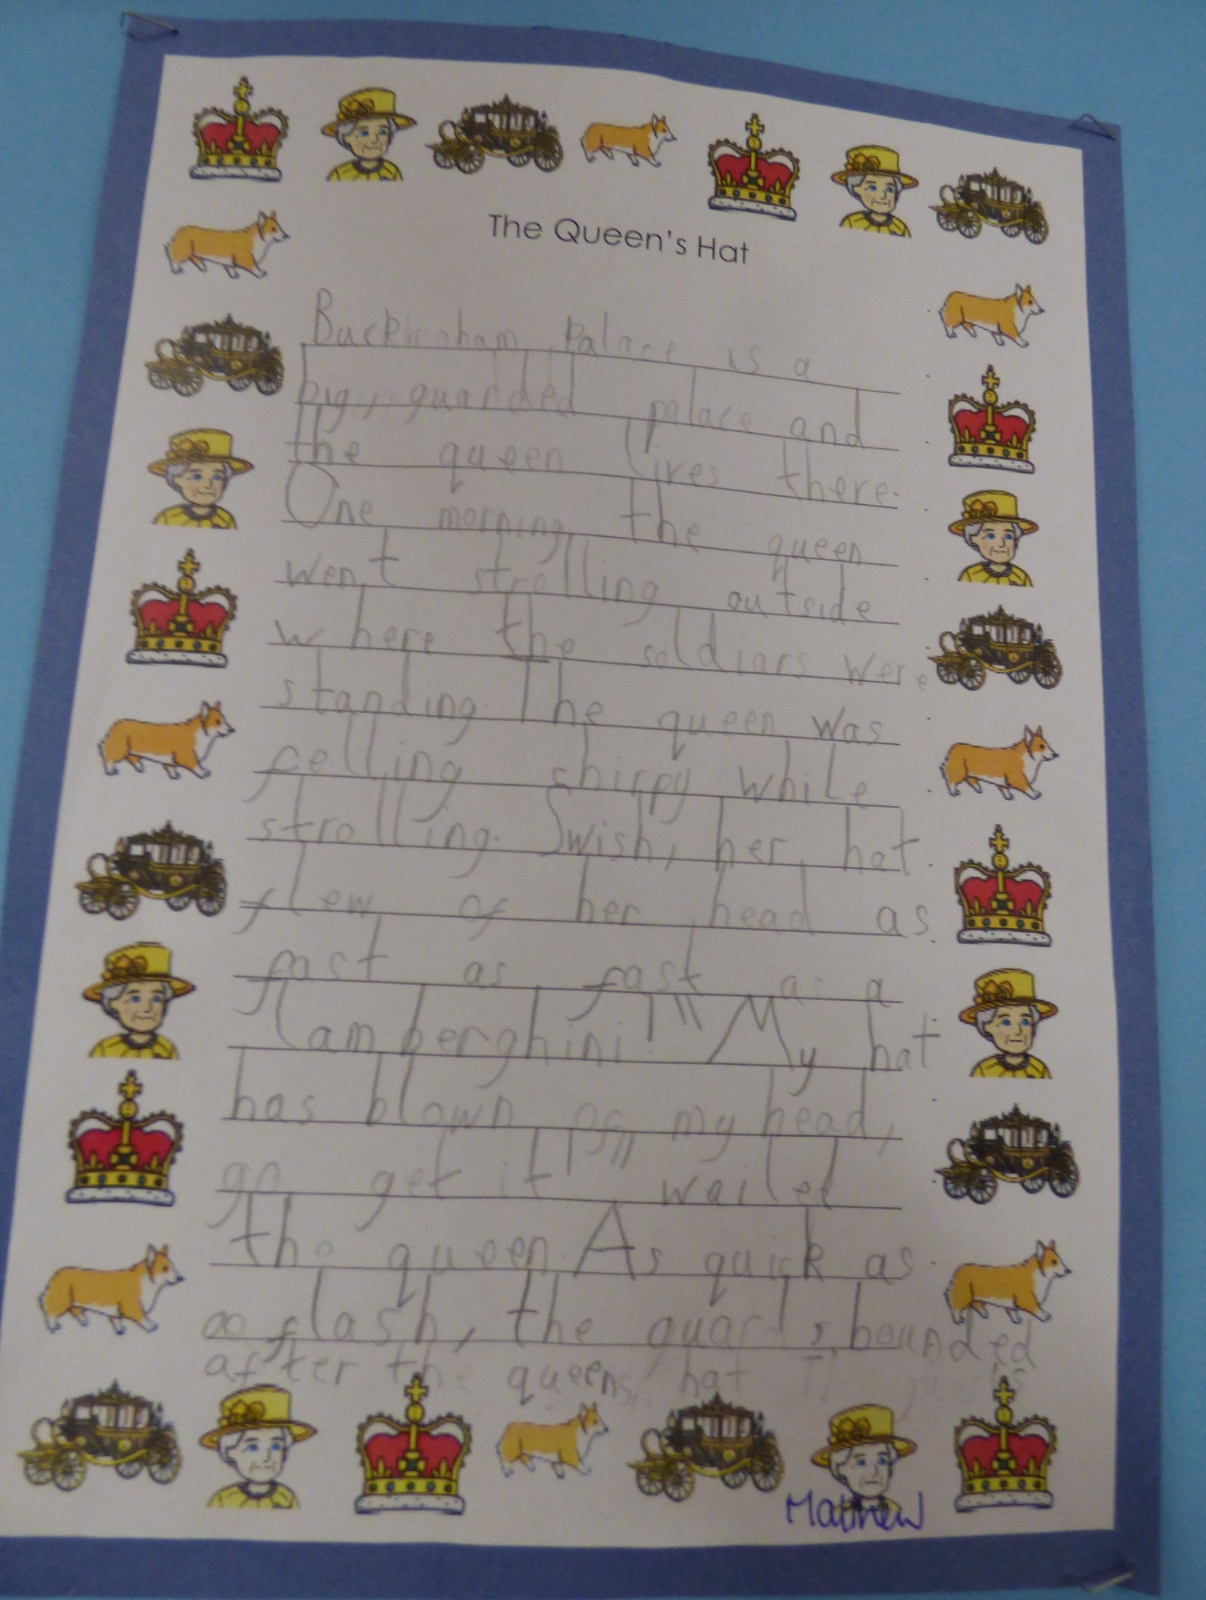 The Queen's Hat
Buckingham Palace is a
big, guarded palace and
the queen lives there.
One morning the queen
went strolling outside
where the soldiars were
standing. The queen was
felling chirpy while
strolling. Swish, her hat
flew of her head as
fast as fast as a
lamberghini! "My hat
has blown of my head,
go get it!" wailed
the queen. As quick as
a flash, the guards bounded
after the queens hat
Matthew